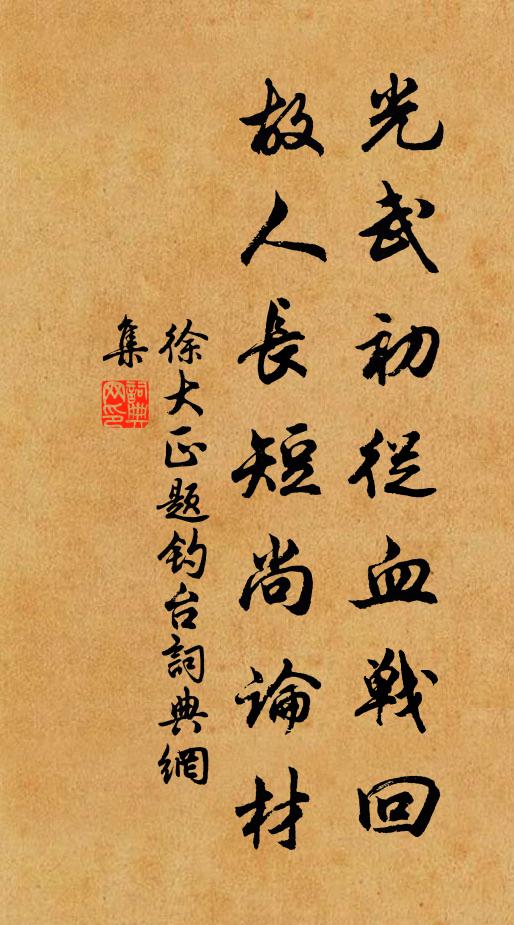 光武初從血戰回
故人長短尚論材
徐大正題釣台詞典網
集
詞典
网印